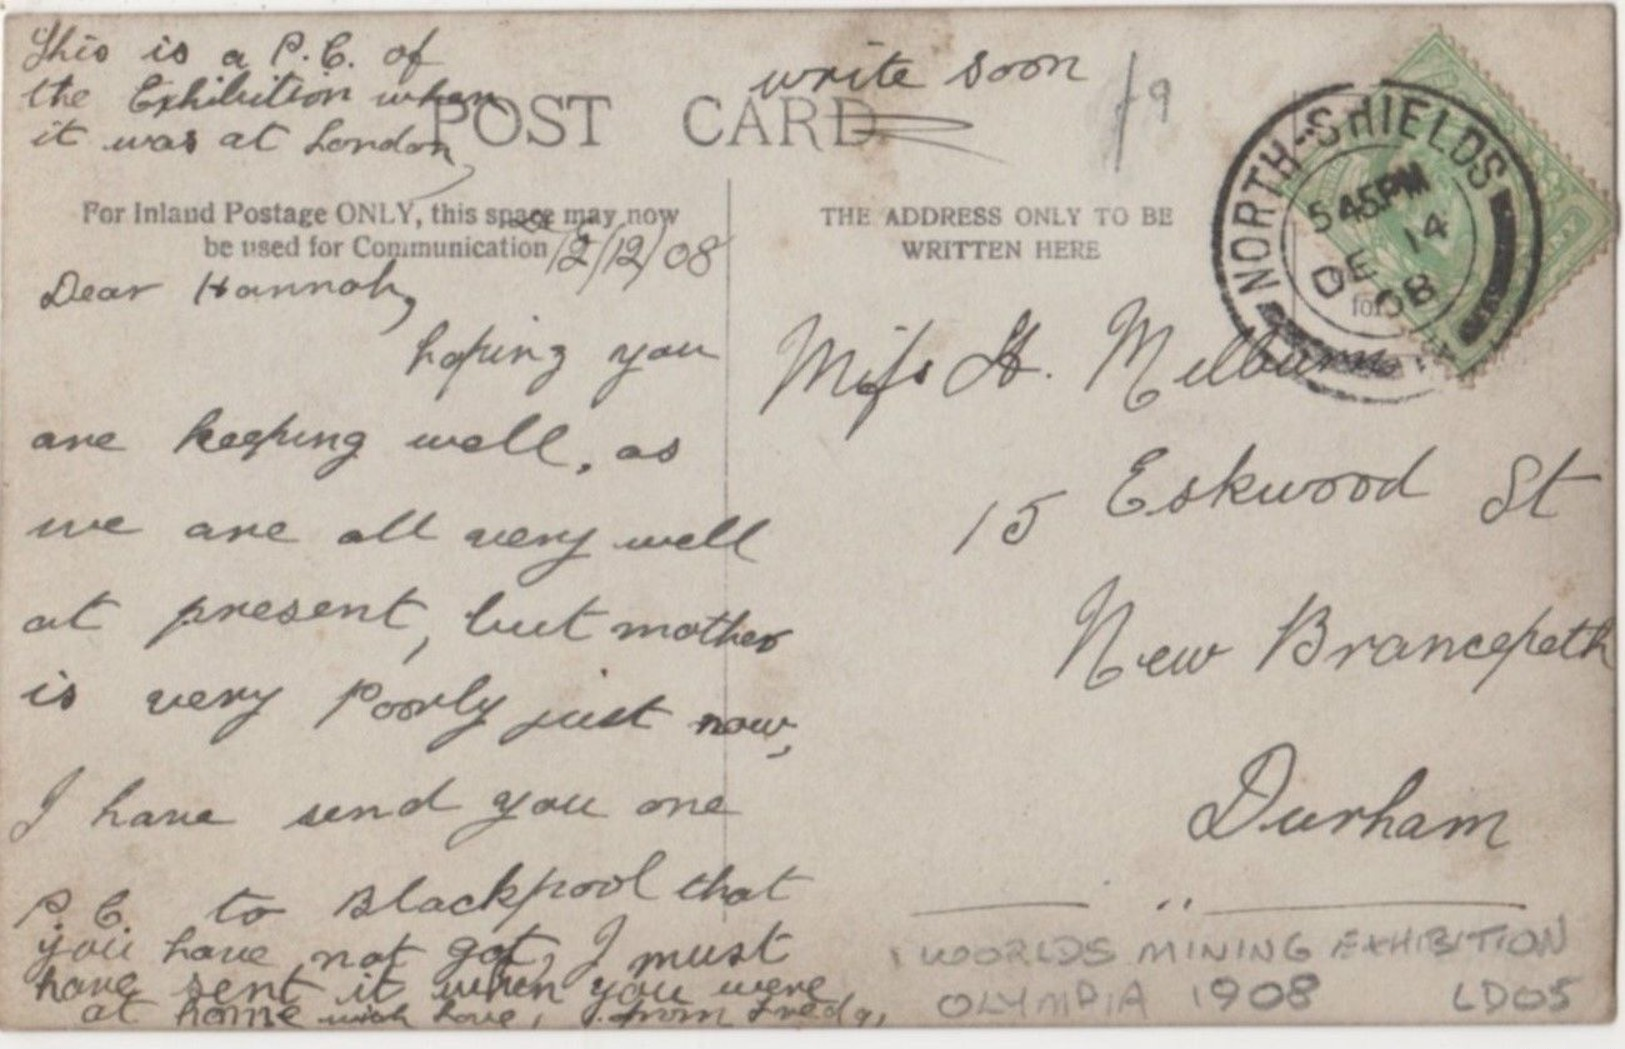 This is a P.C. of
the Exhibition when
it was at London
write soon
/9
POST CARD
For Inland Postage ONLY, this space may now
be used for Communication
THE ADDRESS ONLY TO BE
WRITTEN HERE
NORTH-SHIELDS
5 45PM
DE 14
08
12/12/08
Dear Hannah,
hoping you
are keeping well, as
we are all very well
at present, but mother
is very Poorly just now,
I have send you one
P.C. to Blackpool that
you have not got, I must
have sent it when you were
at home with love, from
Miss H. Milburn
15 Eskwood St
New Brancepeth
Durham
WORLDS MINING EXHIBITION
OLYMPIA 1908 LD05